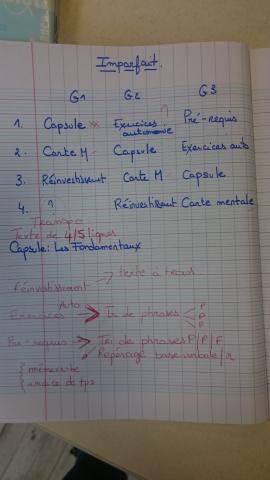 Imparfait.
G1 G2 G3
1. Capsule Exercices autonomie Pré-requis
2. Carte M Capsule Exercices auto
3. Réinvestissent Carte M Capsule
4. Réinvestissent Carte mentale
Texte de 4/5 lignes
Capsule: Les Fondamentaux
Réinvestissement → texte à trous
Exercices Auto → Tri de phrases P P F
Pré-requis → Tri de phrases P/P/F
Repérage base verbale